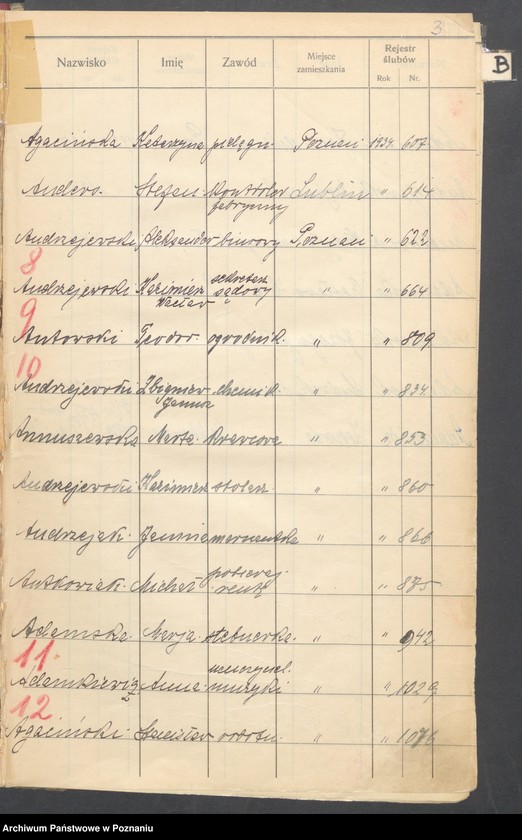 3
Nazwisko Imię Zawód Miejsce zamieszkania Rejestr ślubów
Rok Nr.
B
Agacińska Katarzyna pielęgn. Poznań 1934 607
Anders. Stefan Kontroler Lublin " 614
fabryczny
Andrzejewski Aleksander biurowy Poznań " 622
8
Andrzejewski Kazimierz sekretarz " " 664
Wacław sądowy
9
Antowski Teodor ogrodnik. " " 809
10
Andrzejewski Zbigniew chemik " " 834
Janusz
Annuszewska Marta krawcowa " " 853
Andrzejewski Kazimierz stolarz " " 860
Andrzejak. Janina " " 866
Antkowiak. Michał " " 875
Adamska. Marja " " 942
11.
Adamkiewicz Anna nauczyciel. " " 1029
muzyki
12
Agaciński. Stanisław " " 1076
Archiwum Państwowe w Poznaniu